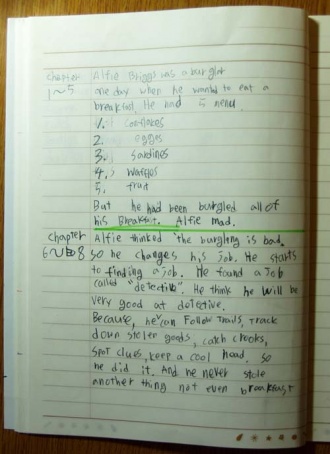 chapter Alfie Briggs was a burglar
1~5 one day when he wants to eat a
breakfast. He had 5 menu
1. Conflakes
2. egges
3. sandines
4. Waffles
5. fruit
But he had been burgled all of
his Breakfast. Alfie mad.
chapter Alfie thinked the burgling is bad.
6~8 so he changes his job. He starts
to finding a job. He found a Job
called "detective". He think he will be
very good at detective.
Because, he can Follow Trails, track
down stolen goods, catch crooks,
spot clues, keep a cool head. so
he did it. And he never stole
another thing not even breakfast